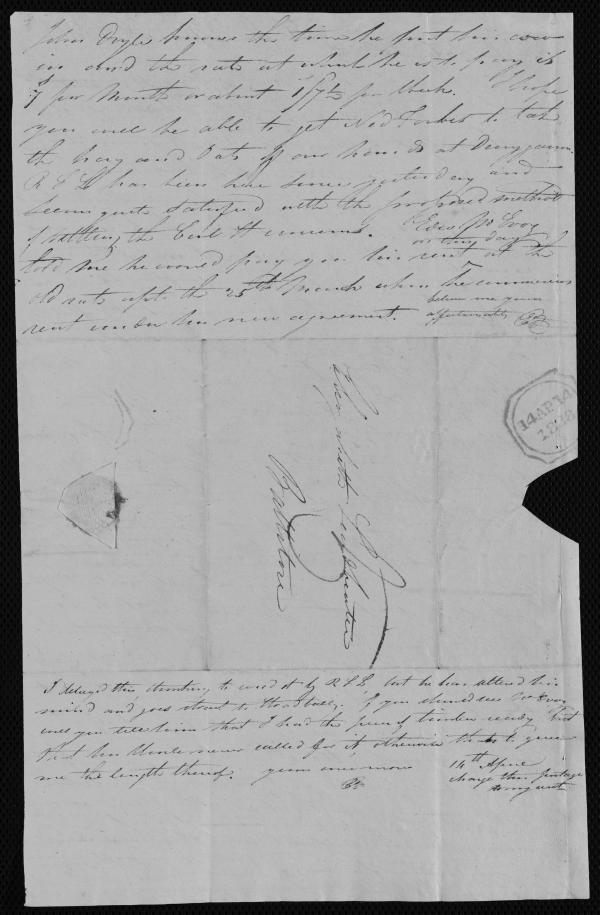 John Doyle knows the time he put his cow
in and the rate at which he is to pay is
7/ per Month or about 1/7½ per Week. I hope
you will be able to get Ned Forbes to take
the hay and Oats off our hands at
R L L has been here since yesterday and
seems quite satisfied with the proposed method
of settling the concerns. Edwd
on thursday
told me he would pay you his rent at the
old rate upto the 25th March when he commences
rent under his new agreement.
believe me yours
affectionately
14 AP 14
1838
Elizabeth Leadbeater
Ballitore
I delayed this thinking to send it by R L L but he has altered his
mind and goes strait to If you should see
will you tell him that I had the piece of timber ready but
that his never called for it otherwise to give
me the length thereof. yours once more
14th April
charge this postage
to my acct